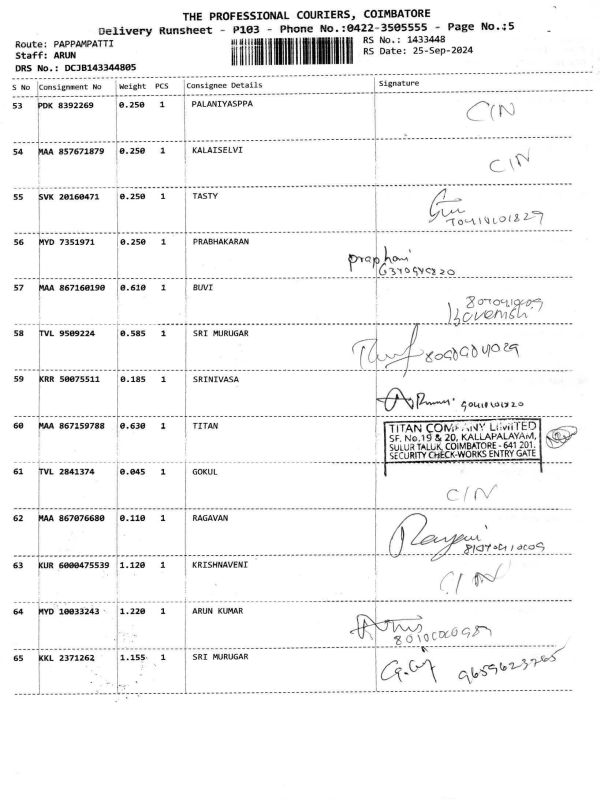 THE PROFESSIONAL COURIERS, COIMBATORE
Delivery Runsheet - P103 - Phone No.:0422-3505555 - Page No.:5
Route: PAPPAMPATTI
RS No.: 1433448
Staff: ARUN
RS Date: 25-Sep-2024
DRS No.: DCJB143344805
S No Consignment No Weight PCS Consignee Details Signature
53 PDK 8392269 0.250 1 PALANIYASPPA CIN
54 MAA 857671879 0.250 1 KALAISELVI CIN
55 SVK 20160471 0.250 1 TASTY
56 MYD 7351971 0.250 1 PRABHAKARAN
57 MAA 867160190 0.610 1 BUVI
58 TVL 9509224 0.585 1 SRI MURUGAR
59 KRR 50075511 0.185 1 SRINIVASA
60 MAA 867159788 0.630 1 TITAN
TITAN COMPANY LIMITED
SF. No.19 & 20, KALLAPALAYAM,
SULUR TALUK, COIMBATORE - 641 201.
SECURITY CHECK-WORKS ENTRY GATE
61 TVL 2841374 0.045 1 GOKUL CIN
62 MAA 867076680 0.110 1 RAGAVAN
63 KUR 6000475539 1.120 1 KRISHNAVENI CIN
64 MYD 10033243 1.220 1 ARUN KUMAR
65 KKL 2371262 1.155 1 SRI MURUGAR 9659623765